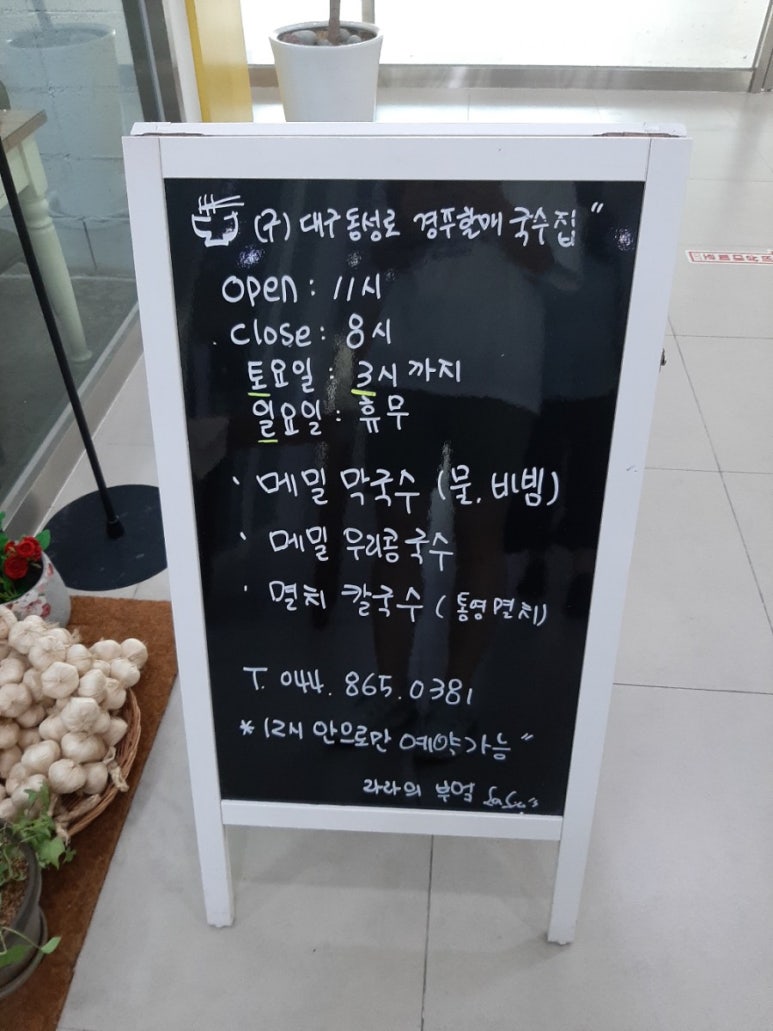 (구) 대구동성로 경주할매 국수집"
open : 11시
close : 8시
토요일 : 3시까지
일요일 : 휴무
· 메밀 막국수 (물, 비빔)
· 메밀 우리콩국수
· 멸치 칼국수 (통영멸치)
T. 044. 865. 0381
* 12시 안으로만 예약가능"
라라의 부엌